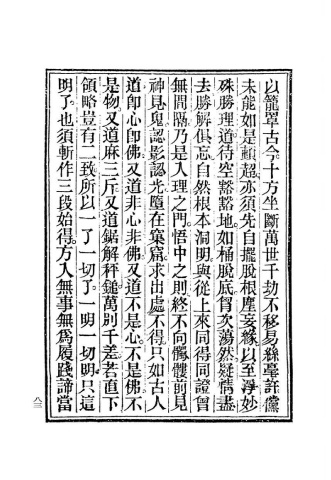 以籠罩古今十方坐斷萬世千劫不移易絲毫許儻
未能如是顛超亦須先自擺脫根塵妄緣以至淨妙
殊勝理道待空豁豁地如桶脫底胷次蕩然疑情盡
去勝解俱忘自然根本洞明與從上來同得同證曾
無間隔乃是入理之門悟中之則終不向髑髏前見
神見鬼認影認光墮在窠窟求出處不得只如古人
道卽心卽佛又道非心非佛又道不是心不是佛不
是物又道麻三斤又道鋸解秤鎚萬別千差若直下
領略豈有二致所以一了一切了一明一切明只這
明了也須斬作三段始得方入無事無爲履踐諦當
八三